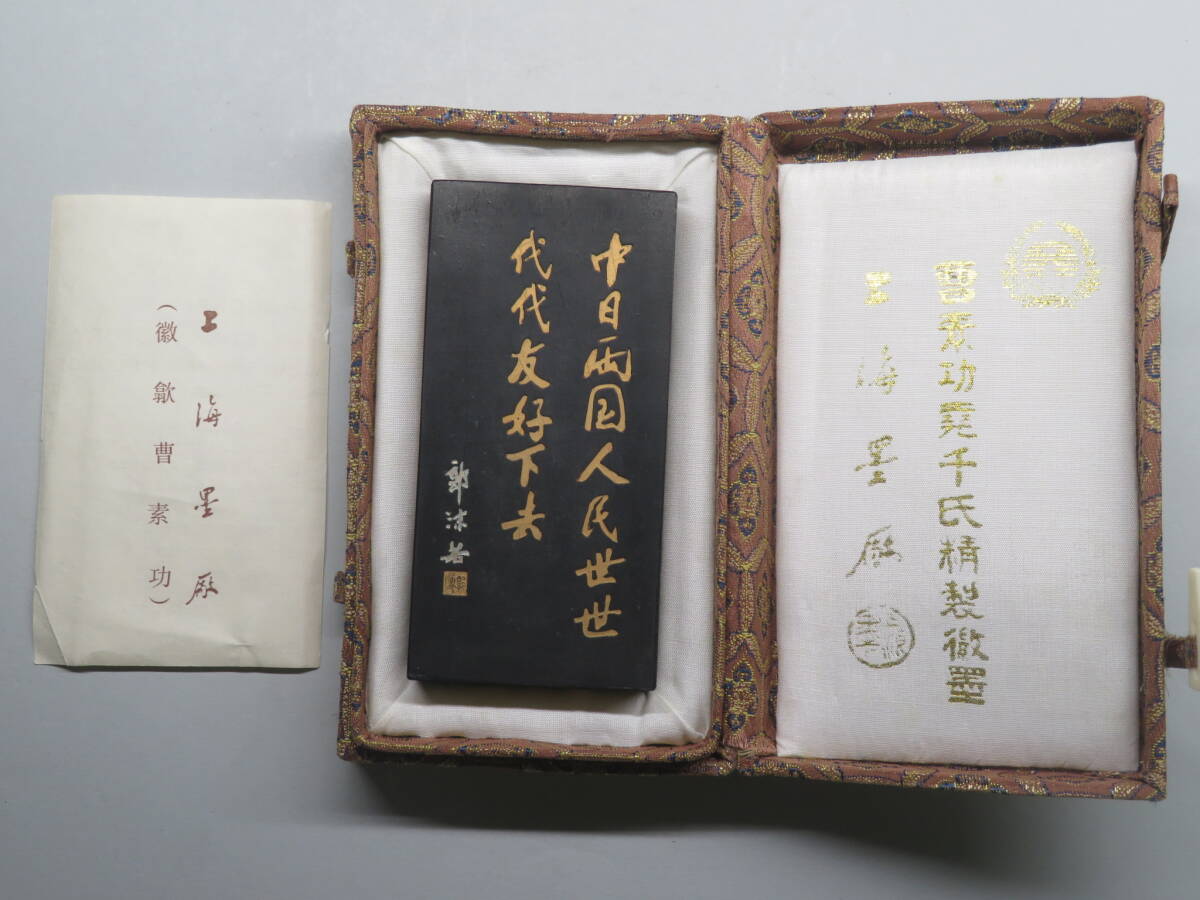 上海墨厰
(徽歙曹素功)
中日两国人民世世
代代友好下去
郭沫若
曹素功堯千氏精製徽墨
上海墨厰